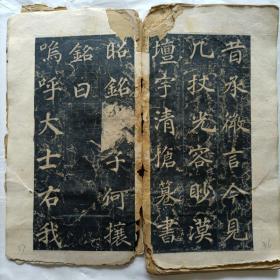 昔承微言今見
几杖光容眇漠
壇宇清愴纂書
昭銘子何攘
銘曰
嗚呼大士右我